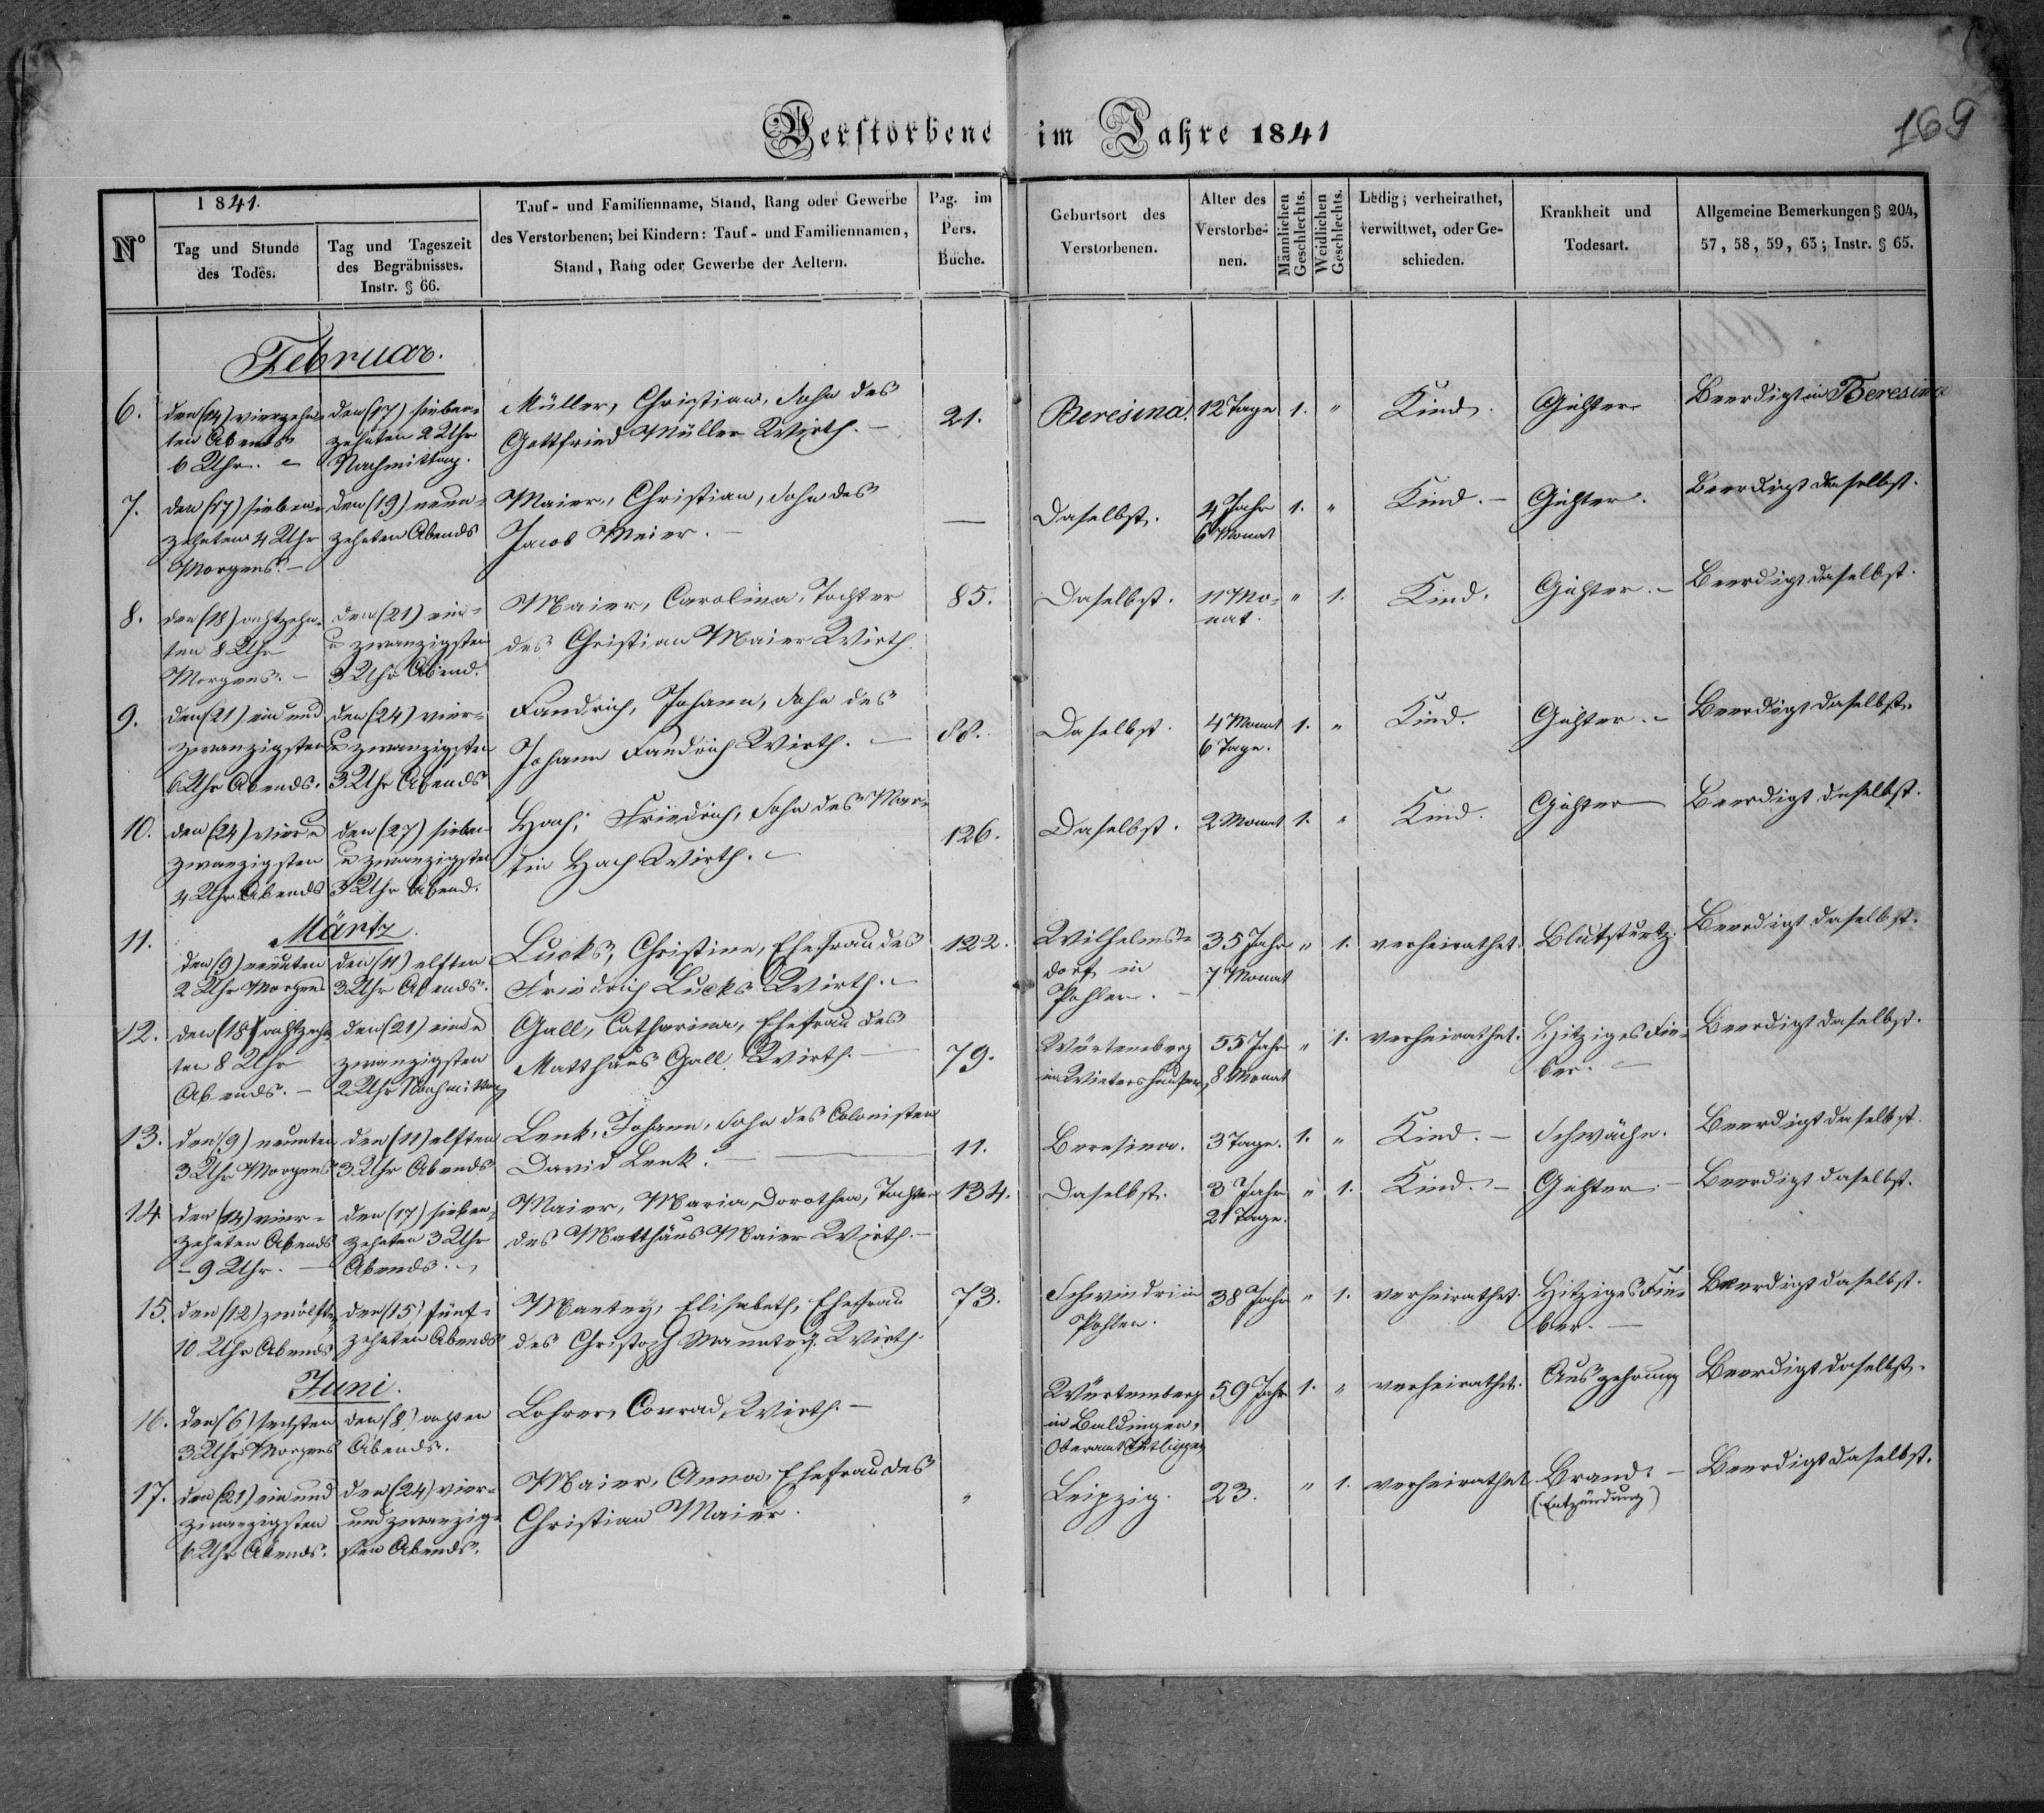 Verstorbene im Jahre 1841
169
Nº
1841.
Tag und Stunde
des Todes.
Tag und Tageszeit
des Begräbnisses.
Instr. § 66.
Tauf- und Familienname, Stand, Rang oder Gewerbe
des Verstorbenen; bei Kindern: Tauf- und Familiennamen,
Stand, Rang oder Gewerbe der Aeltern.
Pag. im
Pers.
Buche.
Geburtsort des
Verstorbenen.
Alter des
Verstorbe-
nen.
Männlichen
Geschlechts.
Weiblichen
Geschlechts.
Ledig; verheirathet,
verwittwet, oder Ge-
schieden.
Krankheit und
Todesart.
Allgemeine Bemerkungen § 204,
57, 58, 59, 63; Instr. § 65.
Februar.
6.
den (14) vierzehn-
ten Abends
6 Uhr.
den (17) sieben-
zehnten 2 Uhr
Nachmittag.
Müller, Christian, Sohn des
Gottfried Müller Wirth. –
21.
Beresina.
12 Tage
1.
"
Kind.
Gichter
Beerdigt in Beresina
7.
den (17) sieben-
zehnten 4 Uhr
Morgens. –
den (19) neun-
zehnten Abends
Maier, Christian, Sohn des
Jacob Meier. –
—
Daselbst.
4 Jahr
6 Monat
1.
"
Kind. –
Gichter.
Beerdigt daselbst.
8.
den (18) achtzehn-
ten 8 Uhr
Morgens. –
den (21) ein-
u zwanzigsten
3 Uhr Abend.
Maier, Carolina, Tochter
des Christian Maier Wirth.
85.
Daselbst.
11 Mo-
nat.
"
1.
Kind.
Gichter. –
Beerdigt daselbst.
9.
den (21) ein und
zwanzigsten
6 Uhr Abends.
den (24) vier-
u zwanzigsten
3 Uhr Abends
Fandrich, Johann, Sohn des
Johann Fandrich Wirth. –
88.
Daselbst.
4 Monat
6 Tage.
1.
"
Kind.
Gichter. –
Beerdigt daselbst.
10.
den (24) vier u
zwanzigsten
4 Uhr Abends
den (27) sieben
u zwanzigsten
3 Uhr Abend.
Hach, Friedrich, Sohn des Mar-
tin Hach Wirth. –
126.
Daselbst.
2 Monat
1.
"
Kind.
Gichter
Beerdigt daselbst.
Märtz.
11.
den (9) neunten
2 Uhr Morgens
den (11) elften
3 Uhr Abends.
Lucks, Christine, Ehefrau des
Friedrich Lucks Wirth. –
122.
Wilhelms-
dorf in
Pohlen. –
35 Jahr
7 Monat
"
1.
verheirathet.
Blutsturtz.
Beerdigt daselbst.
12.
den (18) achtzehn
ten 8 Uhr
Abends. –
den (21) ein u
zwanzigsten
2 Uhr Nachmittag
Gall, Catharina, Ehefrau des
Matthäus Gall Wirth. –
79.
Würtemberg
in Wintershausen,
55 Jahr
8 Monat
"
1.
verheirathet.
Hitziges Fie-
ber. –
Beerdigt daselbst.
13.
den (9) neunten
3 Uhr Morgens
den (11) elften
3 Uhr Abends
Lenk, Johann, Sohn des Colonisten
David Lenk. –
11.
Beresina.
3 Tage.
1.
"
Kind. –
Schwäche.
Beerdigt daselbst.
14.
den (14) vier-
zehnten Abends
– 9 Uhr. –
den (17) sieben-
zehnten 3 Uhr
Abends. –
Maier, Maria Dorothea, Tochter
des Matthäus Maier Wirth. –
134.
Daselbst.
3 Jahr
21 Tage.
"
1.
Kind. –
Gichter. –
Beerdigt daselbst.
15.
den (12) zwölften
10 Uhr Abends
den (15) fünf-
zehnten Abends
Mantey, Elisabeth, Ehefrau
des Christoph Manntey Wirth.
73.
Schwindri in
Pohlen.
38 Jahr
"
1.
verheirathet.
Hitziges Fie-
ber. –
Beerdigt daselbst.
Juni.
16.
den (6) sechsten
3 Uhr Morgens
den (8) achten
Abends.
Lohrer, Conrad, Wirth. –
Würtemberg
in Baldingen,
Oberamt Tutlingen
59 Jahr
1.
"
verheirathet.
Auszehrung
Beerdigt daselbst.
17.
den (21) ein und
zwanzigsten
6 Uhr Abends.
den (24) vier-
und zwanzig-
sten Abends.
Maier, Anna, Ehefrau des
Christian Maier.
"
Leipzig.
23.
"
1.
verheirathet
Brand. –
(Entzündung)
Beerdigt daselbst.